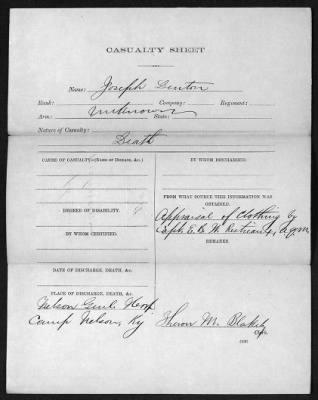 CASUALTY SHEET
Name: Joseph Denton
Rank: Company: Regiment:
Arm: Unknown State:
Nature of Casualty:
Death
CAUSE OF CASUALTY—(NAME OF DISEASE, &c.)
BY WHOM DISCHARGED.
FROM WHAT SOURCE THIS INFORMATION WAS
OBTAINED.
DEGREE OF DISABILITY.
Appraisal of Clothing by
BY WHOM CERTIFIED.
Capt. E. B. W. a.q.m.
REMARKS.
DATE OF DISCHARGE, DEATH, &c.
PLACE OF DISCHARGE, DEATH, &c.
Nelson Genl. Hosp
Camp Nelson, Ky
Theron M. Blakely
Clerk.